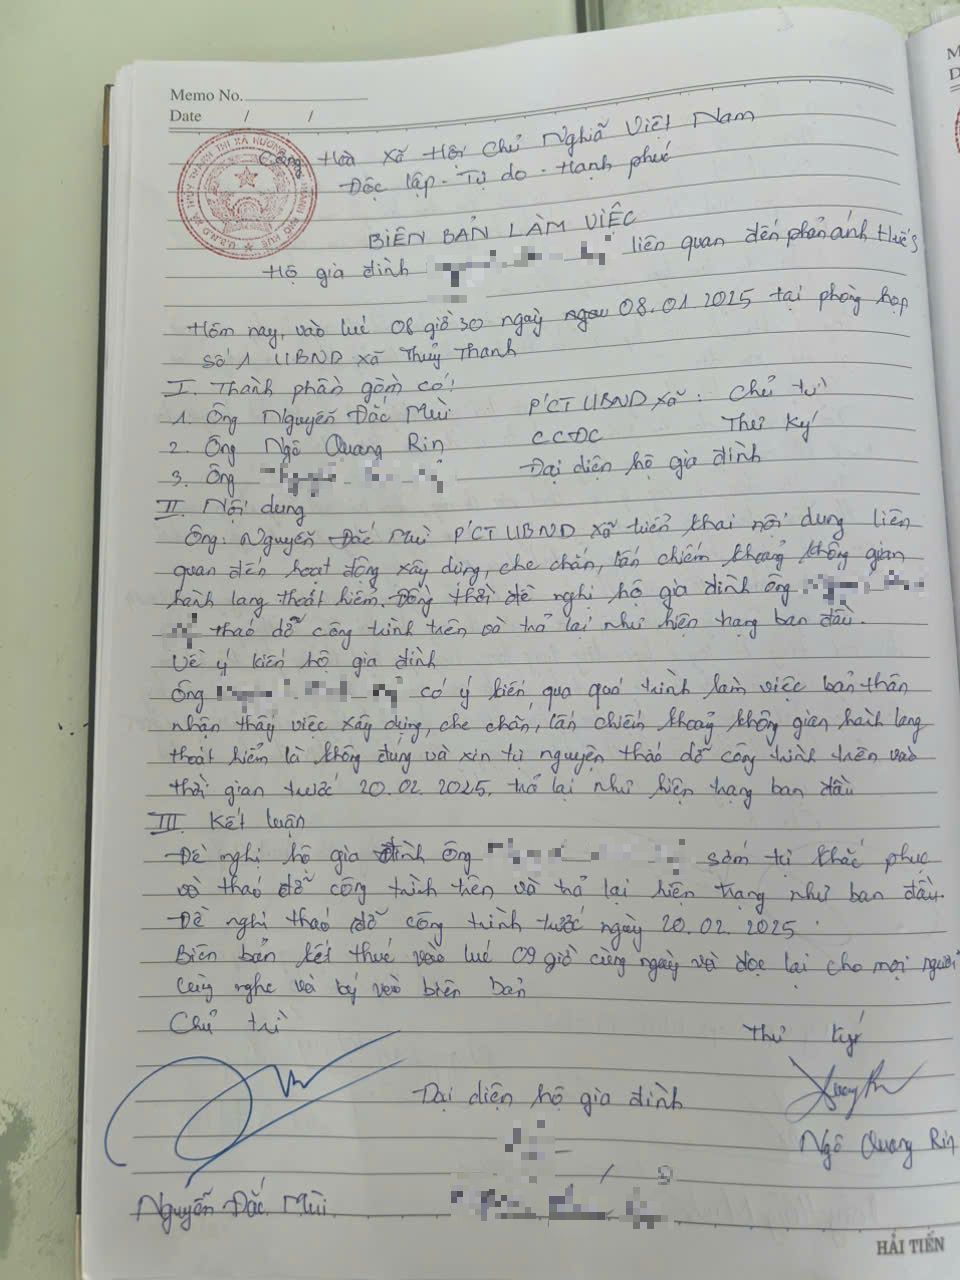 Memo No.
Date / /
Cộng Hoà Xã Hội Chủ Nghĩa Việt Nam
Độc lập - Tự do - Hạnh phúc
BIÊN BẢN LÀM VIỆC
Hộ gia đình liên quan đến phản ánh
Hôm nay, vào lúc 08 giờ 30 ngày 08.01.2025 tại phòng họp
số 1 UBND xã Thuỷ Thanh
I. Thành phần gồm có:
1. Ông Nguyễn Đắc Mùi PCT UBND xã: Chủ trì
2. Ông Ngô Quang Rin CCĐC Thư ký
3. Ông Đại diện hộ gia đình
II. Nội dung
Ông: Nguyễn Đắc Mùi PCT UBND xã triển khai nội dung liên
quan đến hoạt động xây dựng, che chắn, lấn chiếm khoảng không gian
hành lang thoát hiểm. Đồng thời đề nghị hộ gia đình ông
tháo dỡ công trình trên và trả lại như hiện trạng ban đầu.
Về ý kiến hộ gia đình
Ông có ý kiến, qua quá trình làm việc bản thân
nhận thấy việc xây dựng, che chắn, lấn chiếm khoảng không gian hành lang
thoát hiểm là không đúng và xin tự nguyện tháo dỡ công trình trên vào
thời gian trước 20.02.2025. trả lại như hiện trạng ban đầu
III. Kết luận
Đề nghị hộ gia đình ông sớm tự khắc phục
và tháo dỡ công trình trên và trả lại hiện trạng như ban đầu.
Đề nghị tháo dỡ công trình trước ngày 20.02.2025
Biên bản kết thúc vào lúc 09 giờ cùng ngày và đọc lại cho mọi người
cùng nghe và ký vào biên bản
Chủ trì Thư ký
Đại diện hộ gia đình
Ngô Quang Rin
Nguyễn Đắc Mùi
HẢI TIẾN